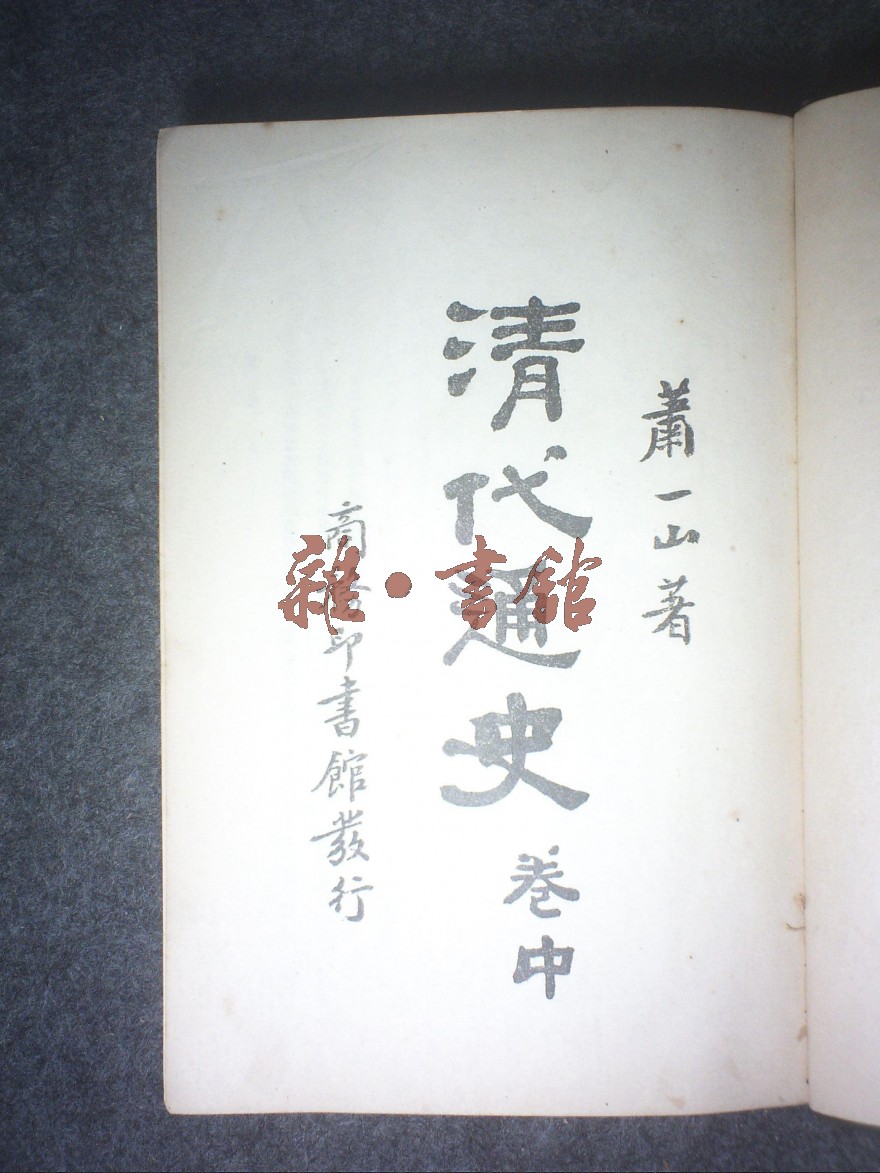 蕭一山著
清代通史
卷中
商務印書館發行
雜·書館